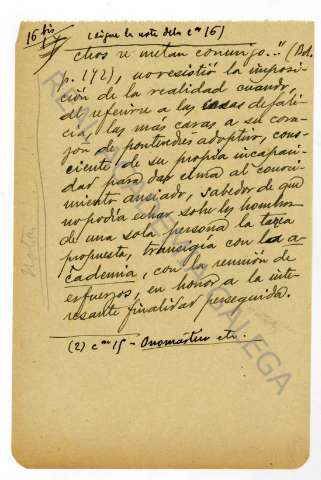 16 bis
(sigue la nota de la cª 16)
chos se metan conmigo..." (Bol.
p. 172), no resistió la imposi-
ción de la realidad cuando,
al referirse a las cosas de Gali-
cia, las más caras a su cora-
zón de pontevedrés adoptivo, cons-
ciente de su propia incapaci-
dad para dar cima al conoci-
miento ansiado, sabedor de que
no podía echar sobre los hombros
de una sola persona la tarea
propuesta, transigía con la a-
cademia, con la reunión de
esfuerzos, en honor a la inte-
resante finalidad perseguida.
(2) cª 15 - Onomástico etc.
REAL ACADEMIA GALEGA